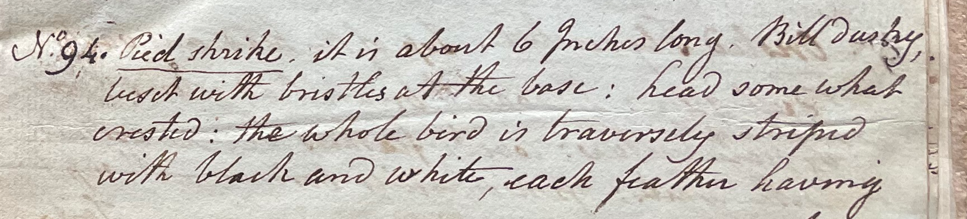 No. 94. Pied shrike. it is about 6 Inches long. Bill dusky,
beset with bristles at the base: head some what
crested: the whole bird is traversely striped
with black and white, each feather having